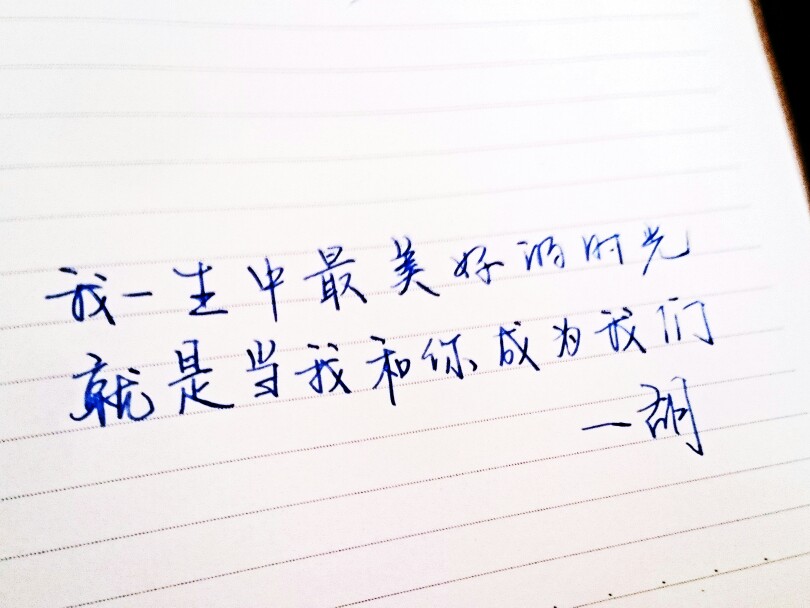 我一生中最美好的时光
就是当我和你成为我们
一胡